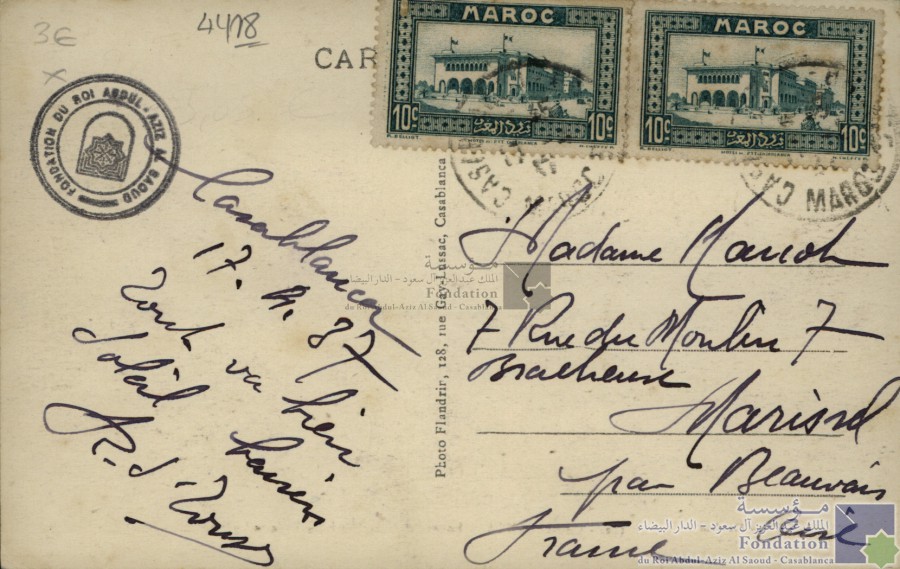 3€
4478
CAR
MAROC
10c 10c
MAROC
10c 10c
FONDATION DU ROI ABDUL-AZIZ AL SAOUD
CASABLANCA
MAROC
Photo Flandrir, 128, rue Gay-Lussac, Casablanca
Casablanca
17. 37
Tout va bien
Soleil baisers
Madame
7 Rue du Moulin 7
Bracheux
Marissel
par Beauvais
Oise
France
مؤسسة
الملك عبد العزيز آل سعود - الدار البيضاء
Fondation
du Roi Abdul-Aziz Al Saoud - Casablanca
مؤسسة
الملك عبد العزيز آل سعود - الدار البيضاء
Fondation
du Roi Abdul-Aziz Al Saoud - Casablanca